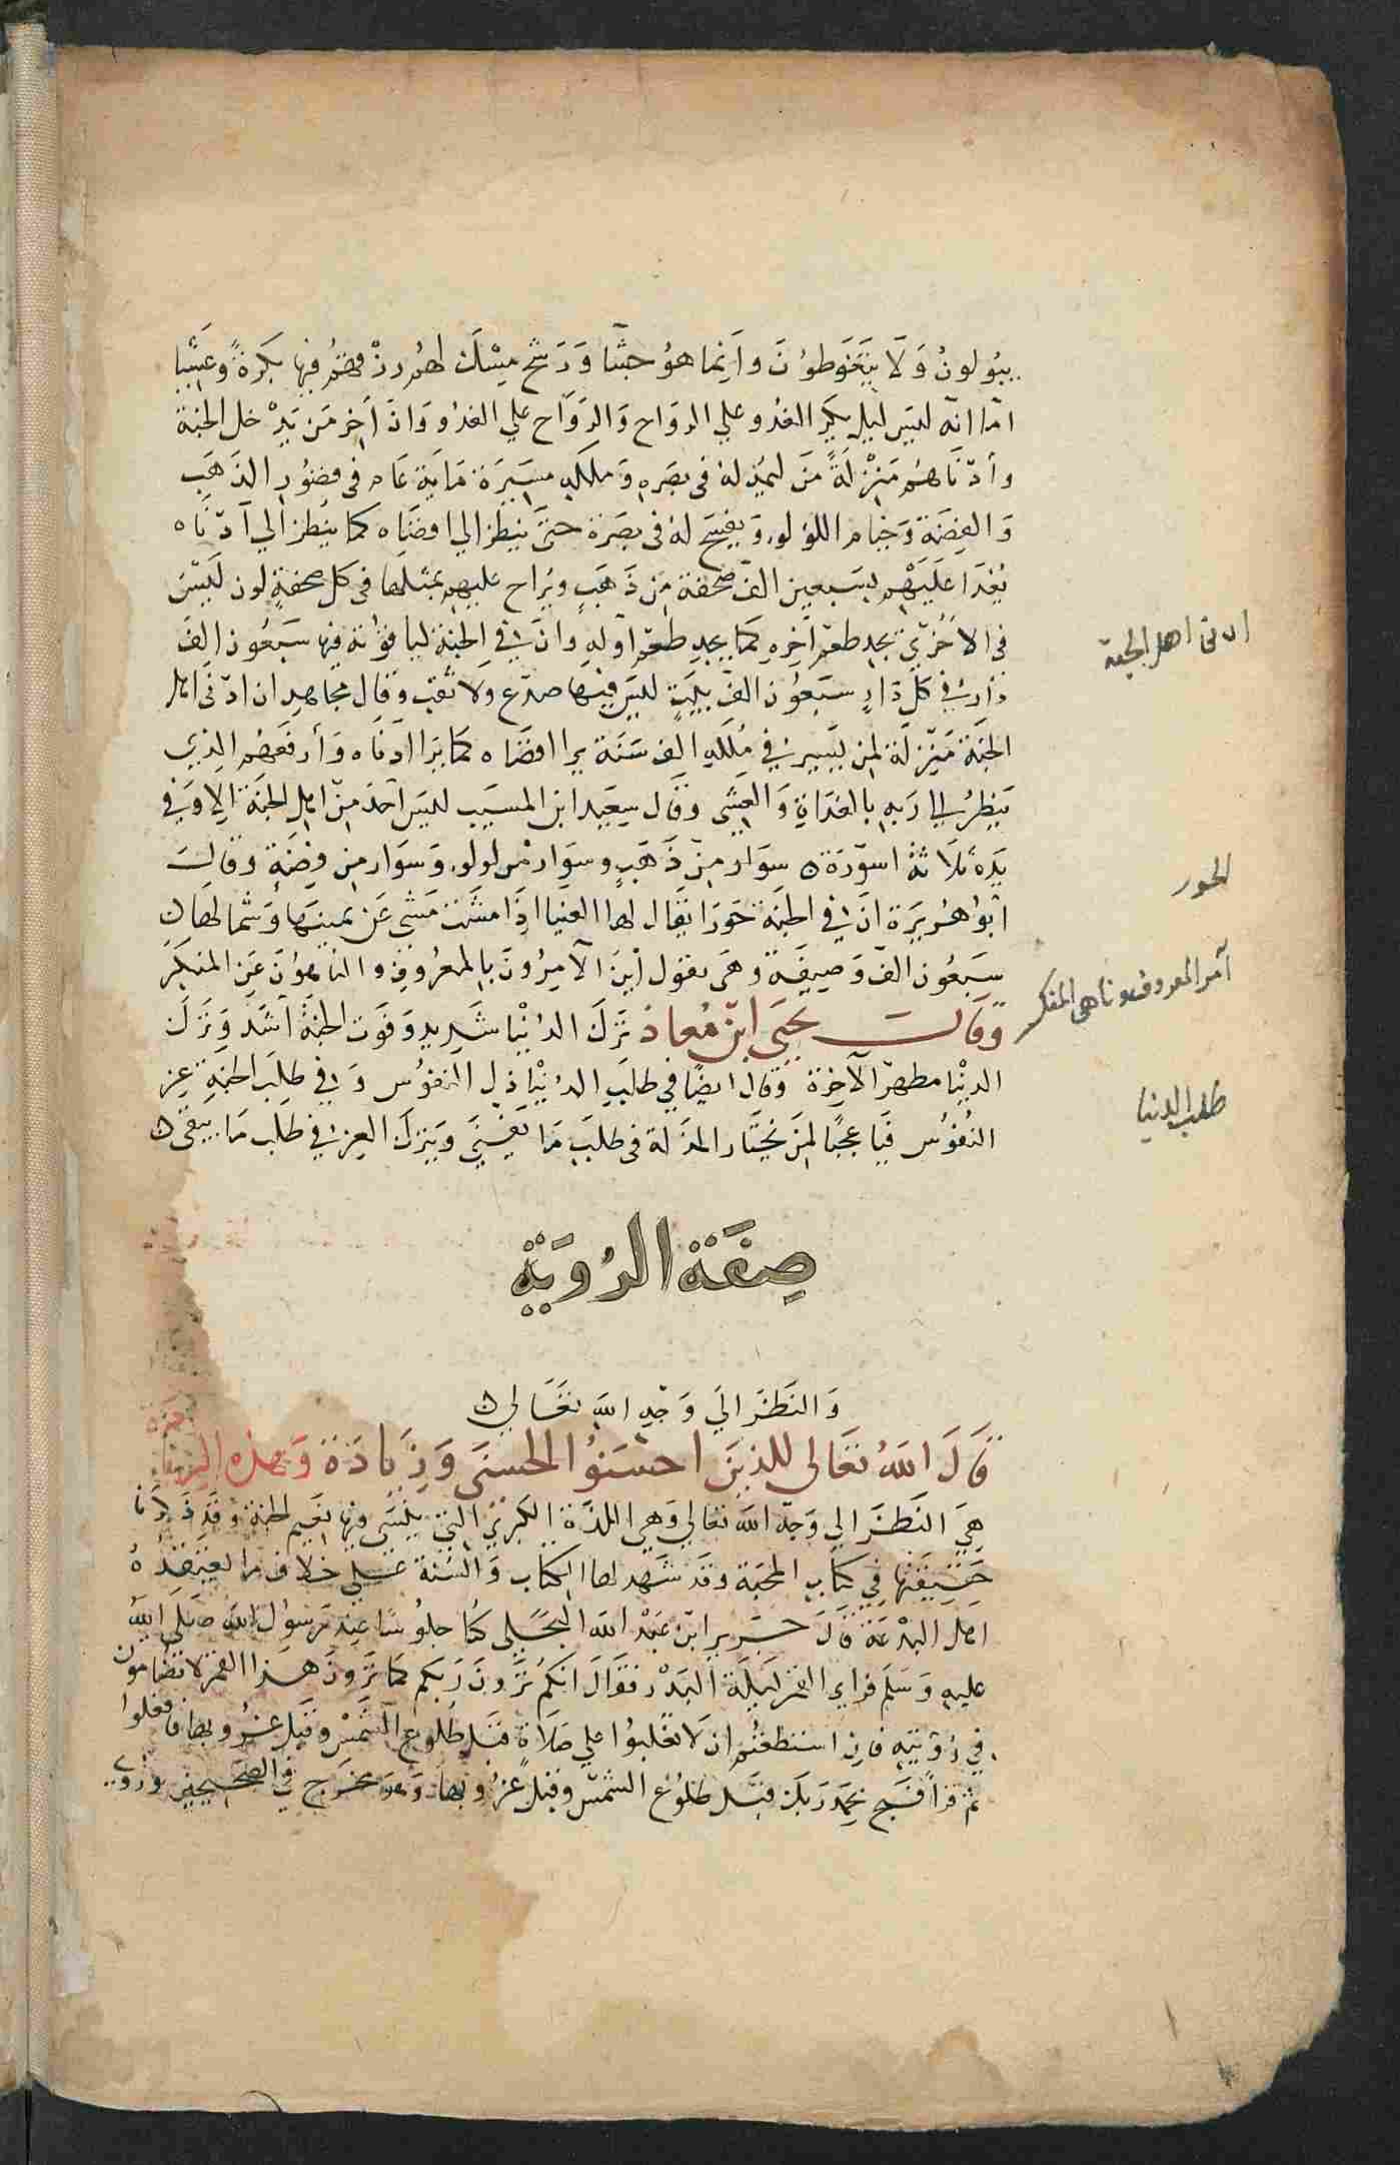 يبولون ولا يتغوطون وانما هو جشا ورشح مسك لهم رزقهم فيها بكرة وعشيا
اما انه ليس ليل يكر الغدو علي الرواح والرواح علي الغدو وان آخر من يدخل الجنة
وأدناهم منزلة من ليمد له في بصره وملكه مسيرة مايه عام في قصور الذهب
والفضة وخيام اللولو ويفسح له في بصره حتى ينظر الي اقصاه كما ينظر الي أدناه
يغدا عليهم بسبعين الف صحفة من ذهب ويراح عليهم بمثلها في كل صحفة لون ليس
في الاخري يجد طعم آخره كما يجد طعم اوله وان في الجنة لياقوتة فيها سبعون الف
دار في كل دار سبعون الف بيت ليس فيها صدع ولا ثقب وقال مجاهد ان ادنى اهل
الجنة منزلة لمن يسير في ملكه الف سنة يرا اقصاه كما يرا ادناه وأرفعهم الذي
ينظر الي ربه بالغداة والعشي وقال سعيد ابن المسيب ليس احد من اهل الجنة الا وفي
يده ثلاثة اسورة سوار من ذهب وسوار من لولو وسوار من فضة وقال
ابو هريرة ان في الجنة حورا يقال لها العينا اذا مشت مشى عن يمينها وشمالها
سبعون الف وصيفة وهي تقول أين الآمرون بالمعروف والناهون عن المنكر
وقال يحيى ابن معاذ ترك الدنيا شديد وفوت الجنة اشد وترك
الدنيا مطهر الآخرة وقال ايضا في طلب الدنيا ذل النفوس وفي طلب الجنة عز
النفوس فيا عجبا لمن يختار المذلة في طلب ما يفنى ويترك العز في طلب ما يبقى
ادنى اهل الجنة
الحور
آمر المعروف وناهى المنكر
طلب الدنيا
صفة الروية
والنظر الي وجه الله تعالي
قال الله تعالى للذين احسنوا الحسنى وزيادة وهذه الزيادة
هي النظر الي وجه الله تعالي وهي اللذة الكبرى التي ينسى فيها نعيم الجنة وقد ذكرنا
حقيقتها في كتاب المحبة وقد شهد لها الكتاب والسنة علي خلاف ما يعتقده
اهل البدعة قال جرير ابن عبد الله البجلي كنا جلوسا عند رسول الله صلى الله
عليه وسلم فراي القمر ليلة البدر فقال انكم ترون ربكم كما ترون هذا القمر لا تضامون
في رؤيته فان استطعتم ان لا تغلبوا علي صلاة قبل طلوع الشمس وقبل غروبها فافعلوا
ثم قرأ فسبح بحمد ربك قبل طلوع الشمس وقبل غروبها وهو مخرج في الصحيحين وروي